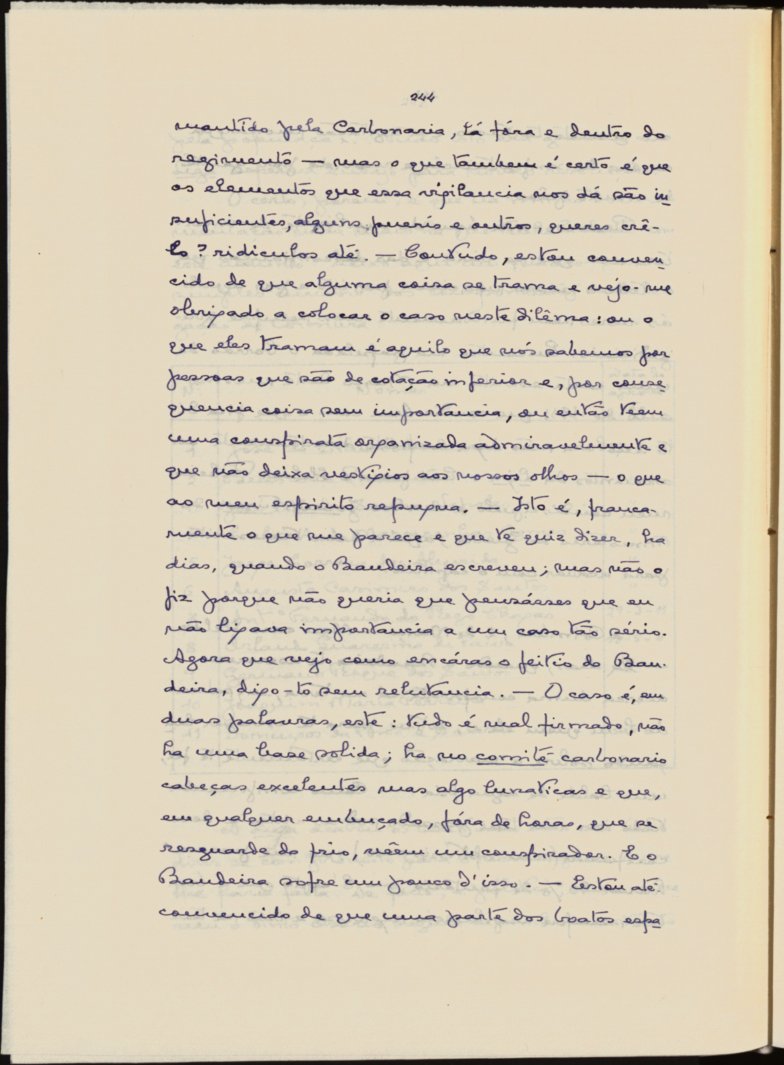 244
mantido pela Carbonaria, lá fóra e dentro do
regimento — mas o que tambem é certo é que
os elementos que essa vigilancia nos dá são in-
suficientes, alguns puerís e outros, queres crê-
lo? ridiculos até. — Contudo, estou conven-
cido de que alguma coisa se trama e vejo-me
obrigado a colocar o caso neste dilêma: ou o
que eles tramam é aquilo que nós sabemos por
pessoas que são de cotação inferior e, por conse-
quencia coisa sem importancia, ou então teem
uma conspirata organizada admiravelmente e
que não deixa vestigios aos nossos olhos — o que
ao meu espirito repugna. — Isto é, franca-
mente o que me parece e que te quiz dizer, ha
dias, quando o Bandeira escreveu; mas não o
fiz porque não queria que pensásses que eu
não ligava importancia a um caso tão sério.
Agora que vejo como encáras o feitio do Ban-
deira, digo-to sem relutancia. — O caso é, em
duas palavras, este: tudo é mal firmado, não
ha uma base solida; ha no comité carbonario
cabeças excelentes mas algo lunaticas e que,
em qualquer embuçado, fóra de horas, que se
resguarde do frio, vêem um conspirador. E o
Bandeira sofre um pouco d'isso. — Estou até
convencido de que uma parte dos boatos espa-